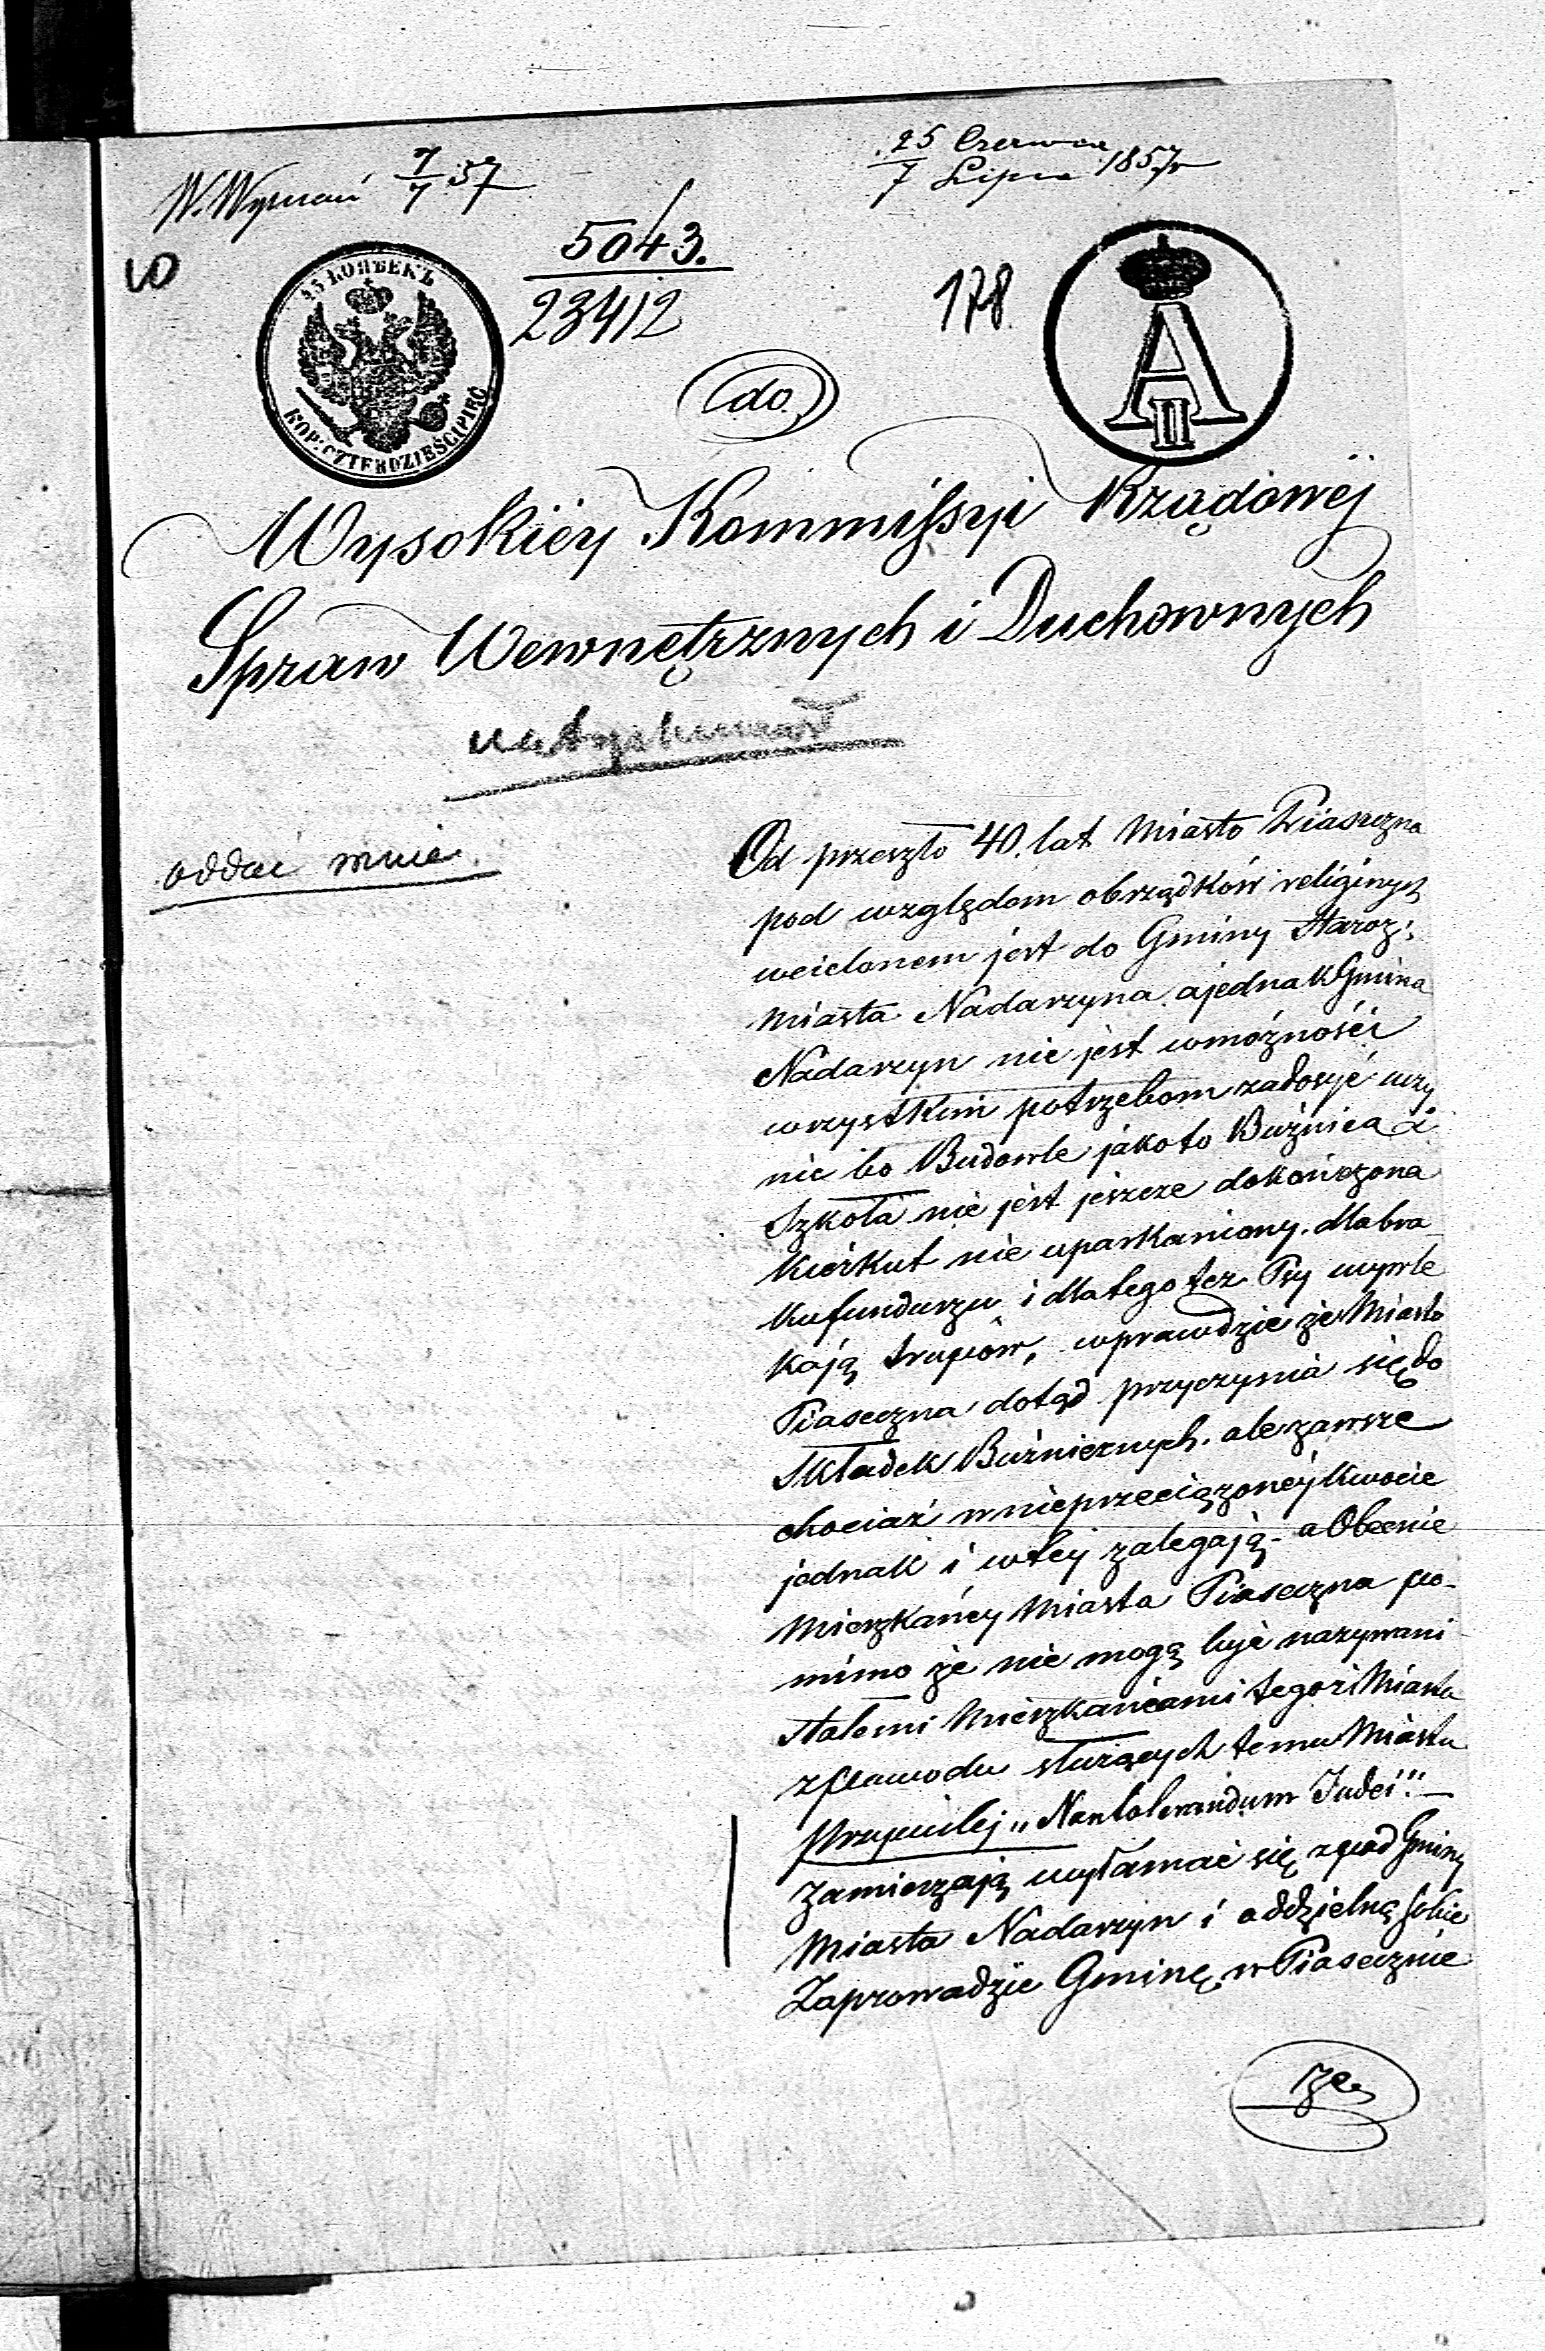 W. Wyznań 7/7 57
25 Czerwca
7 Lipca 1857 r
5043.
23412
178.
45 КОПѢЕКЪ
KOP: CZTERDZIEŚCI PIĘĆ
A II
do
Wysokiéy Kommissyi Rządowéj
Spraw Wewnętrznych i Duchownych
oddać mnie
Od przeszło 40. lat Miasto Piaseczna
pod względom obrządków religinych
wcielonem jest do Gminy Staroz:
Miasta Nadarzyna ajednak Gmina
Nadarzyn nie jest wmożności
wszystkim potrzebom zadosyć uczy
nic bo Budowle jakoto Bużnica i
Szkoła nie jest jeszcze dokończona
Kierkut nie uparkaniony. dla bra
ku funduszu i dlatego tez Psy wywle
kają trupów, wprawdzie że Miasto
Piaseczna dotąd przyczynia się do
Składek Bużnicznych. ale zawsze
chociaż wnieprzeciązonéj Kwocie
jednak i wtej zalegają - a Obecnie
Mieszkańcy Miasta Piaseczna po-
mimo że nie mogą byjć nazywani
stałemi Mieszkańcami tegoż Miasta
zpowodu słuzących temu Miastu
Przywilej „Nontolerandum Judei"! —
zamierzają wyłamać się zpod Gminy
Miasta Nadarzyn i oddzielną sobie
Zaprowadzić Gminę w Piasecznie